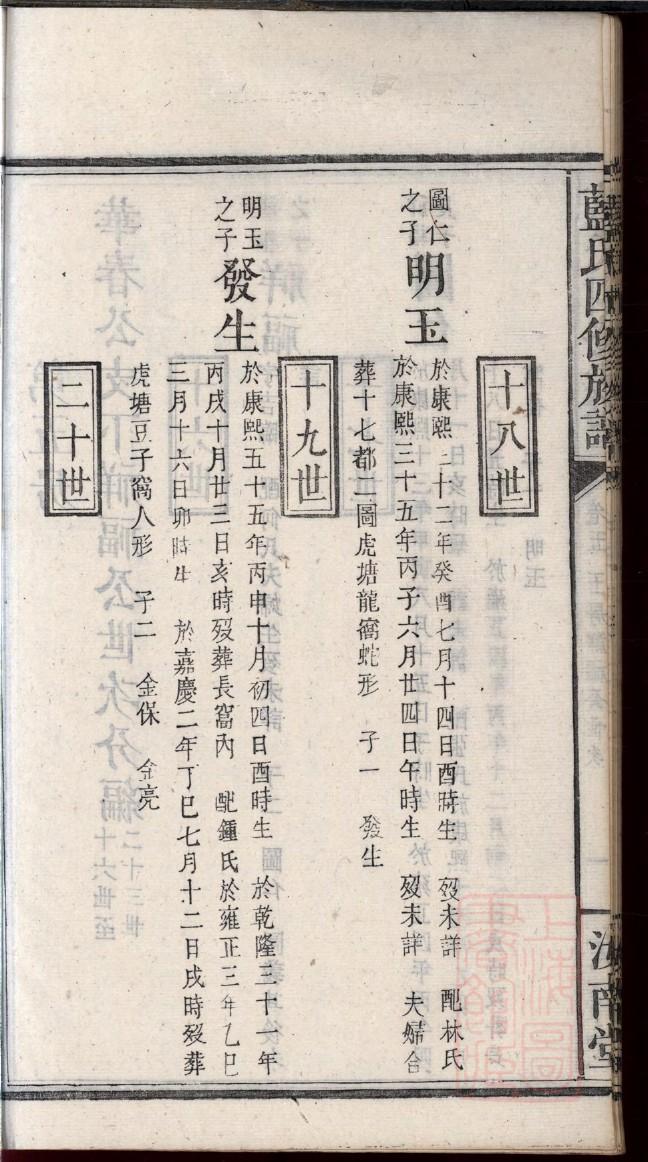 藍氏四修族譜
十八世
圖仁之子
明玉
於康熙三十二年癸酉七月十四日酉時生 歿未詳 配林氏
於康熙三十五年丙子六月廿四日午時生 歿未詳 夫婦合
葬十七都一圖虎塘龍窩蛇形 子一 發生
十九世
明玉之子
發生
於康熙五十五年丙申十月初四日酉時生 於乾隆三十一年
丙戌十月廿三日亥時歿葬長窩內 配鍾氏於雍正三年乙巳
三月十六日卯時生 於嘉慶二年丁巳七月十二日戌時歿葬
虎塘豆子窩人形 子二 金保 金亮
二十世
上海圖書館藏